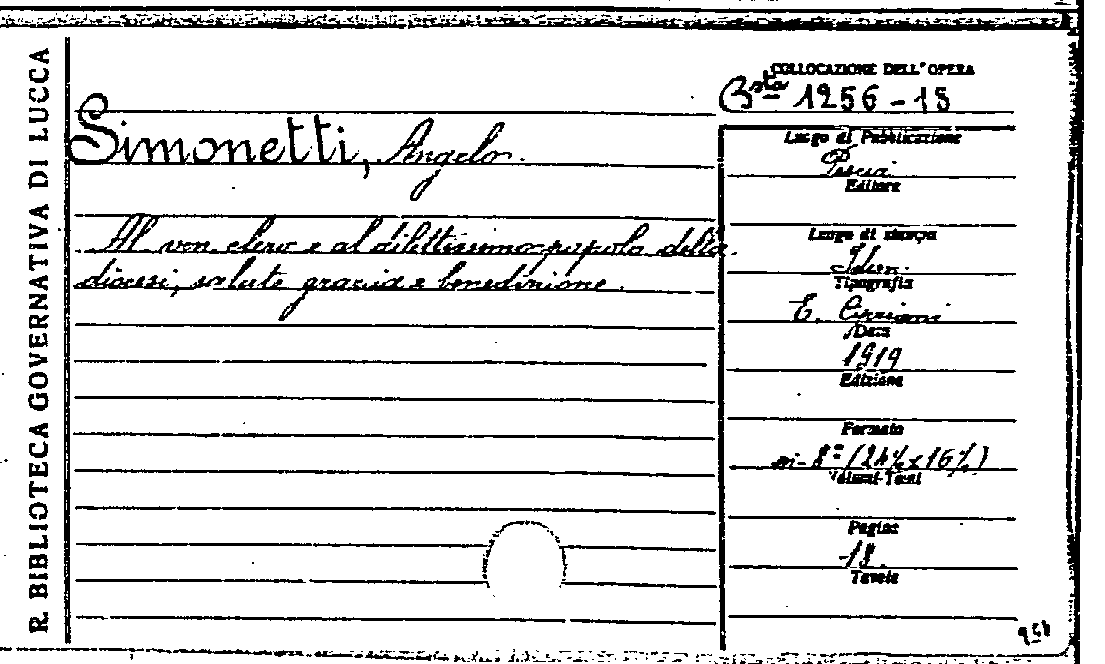 R. BIBLIOTECA GOVERNATIVA DI LUCCA
COLLOCAZIONE DELL'OPERA
Bsta 1256-18
Simonetti, Angelo.
Al ven. clero e al dilettissimo popolo della
diocesi, salute grazia e benedizione.
Luogo di Pubblicazione
Pescia
Editore
Luogo di stampa
Idem.
Tipografia
E. Cipriani
Data
1919
Edizione
Formato
in-8° (24½x16½)
Volumi-Tomi
Pagine
18.
Tavole